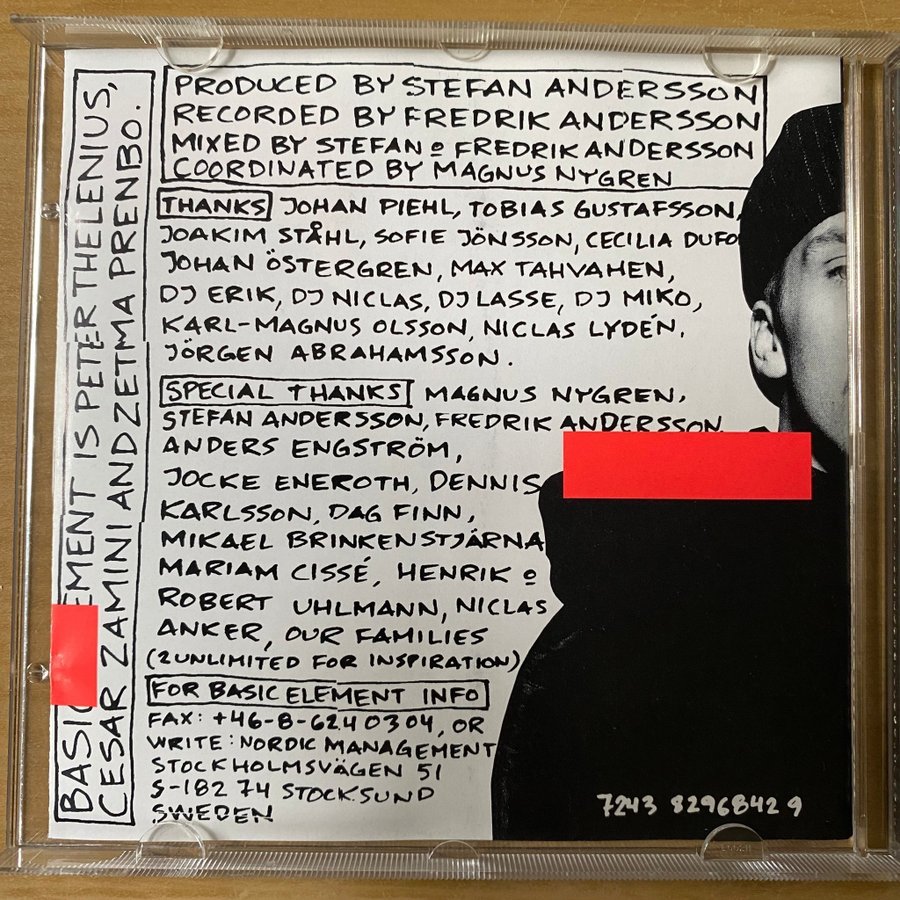 BASIC ELEMENT IS PETER THELENIUS,
CESAR ZAMINI AND ZETMA PRENBO.
PRODUCED BY STEFAN ANDERSSON
RECORDED BY FREDRIK ANDERSSON
MIXED BY STEFAN o FREDRIK ANDERSSON
COORDINATED BY MAGNUS NYGREN
THANKS JOHAN PIEHL, TOBIAS GUSTAFSSON,
JOAKIM STÅHL, SOFIE JÖNSSON, CECILIA
JOHAN ÖSTERGREN, MAX TAHVAHEN,
DJ ERIK, DJ NICLAS, DJ LASSE, DJ MIKO,
KARL-MAGNUS OLSSON, NICLAS LYDÉN,
JÖRGEN ABRAHAMSSON.
SPECIAL THANKS MAGNUS NYGREN,
STEFAN ANDERSSON, FREDRIK ANDERSSON,
ANDERS ENGSTRÖM,
JOCKE ENEROTH, DENNIS
KARLSSON, DAG FINN,
MIKAEL BRINKENSTJÄRNA
MARIAM CISSÉ, HENRIK o
ROBERT UHLMANN, NICLAS
ANKER, OUR FAMILIES
(2UNLIMITED FOR INSPIRATION)
FOR BASIC ELEMENT INFO
FAX: +46-8-624 03 04, OR
WRITE: NORDIC MANAGEMENT
STOCKHOLMSVÄGEN 51
S-182 74 STOCKSUND
SWEDEN
7243 8296842 9